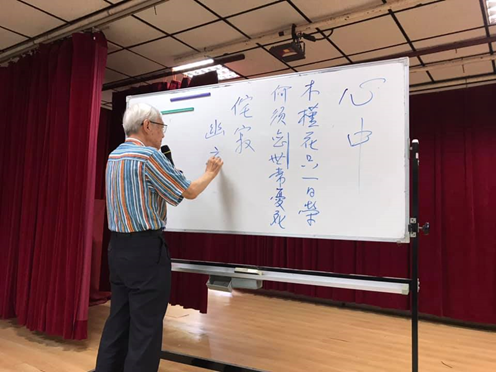 心中
木槿花只一日榮
何須恋世常憂死
侘寂
幽